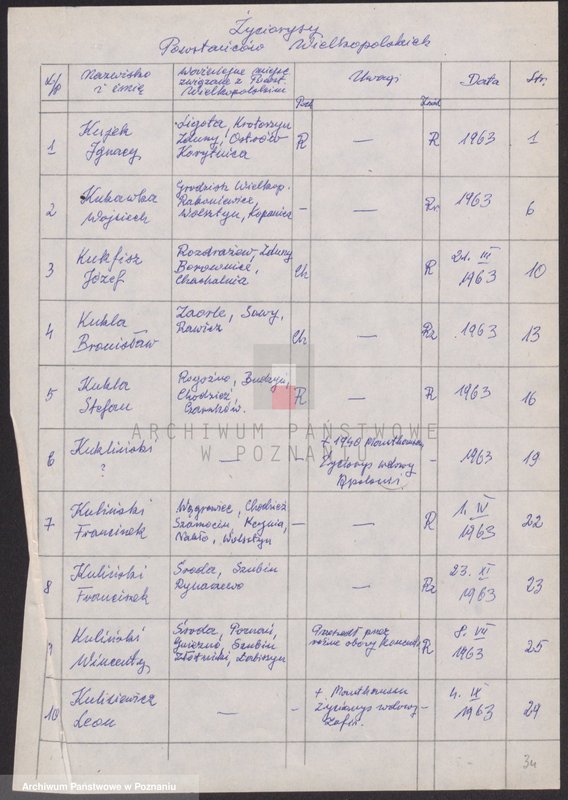 Życiorysy
Powstańców Wielkopolskich
L/p Nazwisko i imię Ważniejsze miejsc. związane z Powst. Wielkopolskim Poch Uwagi Źród Data Str.
1 Kujek Ignacy Ligota, Krotoszyn Zduny, Ostrów Korytnica R — R 1963 1
2 Kukawka Wojciech Grodzisk Wielkop. Rakoniewice, Wolsztyn, Kopanica — — Rr 1963 6
3 Kukfisz Józef Rozdrażew, Zduny Borownica, Chachalnia Ch R 21. III 1963 10
4 Kukla Bronisław Zaorle, Sowy, Rawicz Ch — Rz 1963 13
5 Kukla Stefan Rogoźno, Budzyń, Chodzież Czarnków. R — R 1963 16
6 Kukliński ? — — + 1940 Mauthausen Życiorys wdowy Apolonii — 1963 19
7 Kuliński Franciszek Wągrowiec, Chodzież Szamocin, Kcynia, Nakło, Wolsztyn — — R 1. IV 1963 22
8 Kuliński Franciszek Środa, Szubin Rynarzewo — Rz 23. XI 1963 23
9 Kuliński Wincenty Środa, Poznań, Gniezno, Szubin Złotniki, Łabiszyn Przeszedł przez różne obozy koncentr. R 8. VII 1963 25
10 Kulisiewicz Leon — — + Mauthausen życiorys wdowy Zofii. — 4. IX 1963 29
34
ARCHIWUM PAŃSTWOWE
W POZNANIU
Archiwum Państwowe w Poznaniu